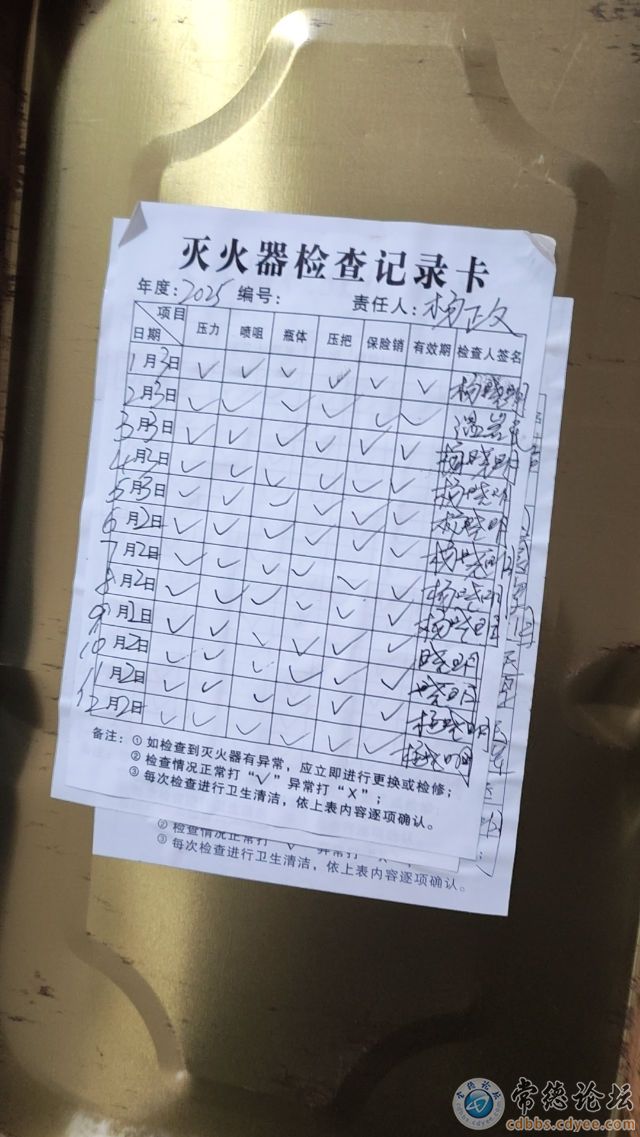 灭火器检查记录卡
年度:2025 编号: 责任人:杨政
项目 日期 压力 喷咀 瓶体 压把 保险销 有效期 检查人签名
1月3日 ✓ ✓ ✓ ✓ ✓ ✓ 杨晓明
2月3日 ✓ ✓ ✓ ✓ ✓ ✓
3月3日 ✓ ✓ ✓ ✓ ✓ ✓ 杨晓明
4月2日 ✓ ✓ ✓ ✓ ✓ ✓ 杨晓明
5月3日 ✓ ✓ ✓ ✓ ✓ ✓ 杨晓明
6月2日 ✓ ✓ ✓ ✓ ✓ ✓ 杨晓明
7月2日 ✓ ✓ ✓ ✓ ✓ ✓ 杨晓明
8月2日 ✓ ✓ ✓ ✓ ✓ ✓ 杨晓明
9月2日 ✓ ✓ ✓ ✓ ✓ ✓ 晓明
10月2日 ✓ ✓ ✓ ✓ ✓ ✓ 晓明
11月2日 ✓ ✓ ✓ ✓ ✓ ✓ 杨晓明
12月2日 ✓ ✓ ✓ ✓ ✓ ✓ 杨晓明
备注:①如检查到灭火器有异常,应立即进行更换或检修;
②检查情况正常打“✓”异常打“X”;
③每次检查进行卫生清洁,依上表内容逐项确认。
②检查情况正常打 异常打
③每次检查进行卫生清洁,依上表内容逐项确认。
常德论坛
cdbbs.cdyee.com